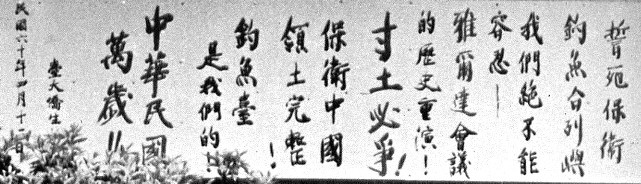 誓死保衛
釣魚台列嶼
我們絕不能
容忍—
雅爾達會議
的歷史重演！
寸土必爭！
保衛中國
領土完整！
釣魚臺
是我們的！
中華民國
萬歲！！
臺大僑生
民國六十年四月十二日